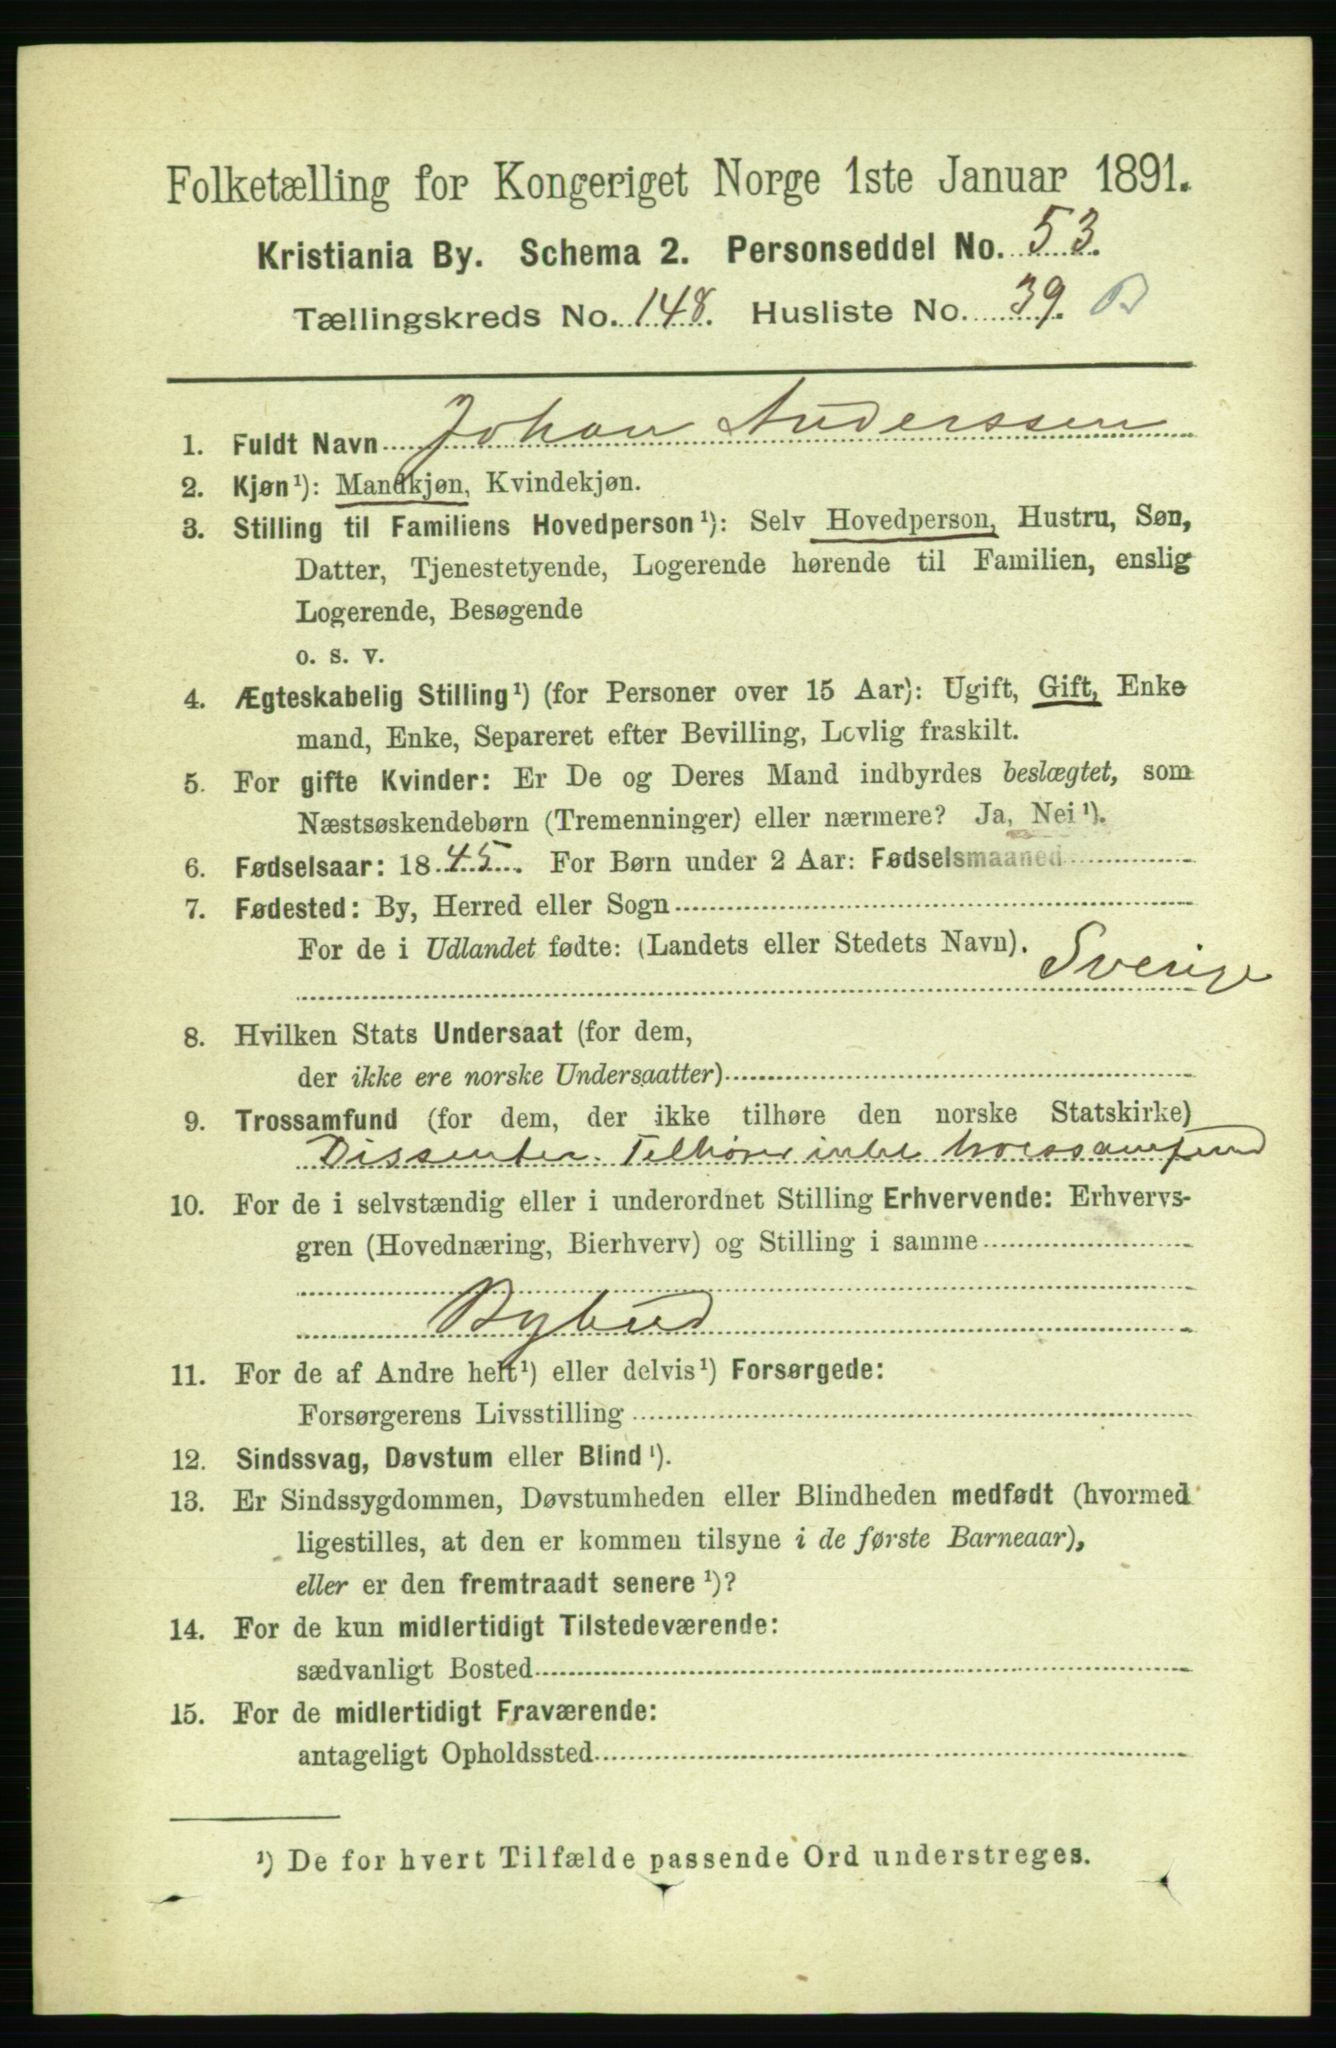 Folketælling for Kongeriget Norge 1ste Januar 1891.
Kristiania By. Schema 2. Personseddel No. 53.
Tællingskreds No. 148. Husliste No. 39. B
1. Fuldt Navn Johan Anderssen
2. Kjøn¹): Mandkjøn, Kvindekjøn.
3. Stilling til Familiens Hovedperson¹): Selv Hovedperson, Hustru, Søn,
Datter, Tjenestetyende, Logerende hørende til Familien, enslig
Logerende, Besøgende
o. s. v.
4. Ægteskabelig Stilling¹) (for Personer over 15 Aar): Ugift, Gift, Enke
mand, Enke, Separeret efter Bevilling, Lovlig fraskilt.
5. For gifte Kvinder: Er De og Deres Mand indbyrdes beslægtet, som
Næstsøskendebørn (Tremenninger) eller nærmere? Ja, Nei¹).
6. Fødselsaar: 1845. For Børn under 2 Aar: Fødselsmaaned
7. Fødested: By, Herred eller Sogn
For de i Udlandet fødte: (Landets eller Stedets Navn). Sverige
8. Hvilken Stats Undersaat (for dem,
der ikke ere norske Undersaatter)
9. Trossamfund (for dem, der ikke tilhøre den norske Statskirke)
Dissenter. Tilhører intet troessamfund
10. For de i selvstændig eller i underordnet Stilling Erhvervende: Erhvervs-
gren (Hovednæring, Bierhverv) og Stilling i samme
Bybud
11. For de af Andre helt¹) eller delvis¹) Forsørgede:
Forsørgerens Livsstilling
12. Sindssvag, Døvstum eller Blind¹).
13. Er Sindssygdommen, Døvstumheden eller Blindheden medfødt (hvormed
ligestilles, at den er kommen tilsyne i de første Barneaar),
eller er den fremtraadt senere¹)?
14. For de kun midlertidigt Tilstedeværende:
sædvanligt Bosted
15. For de midlertidigt Fraværende:
antageligt Opholdssted
¹) De for hvert Tilfælde passende Ord understreges.